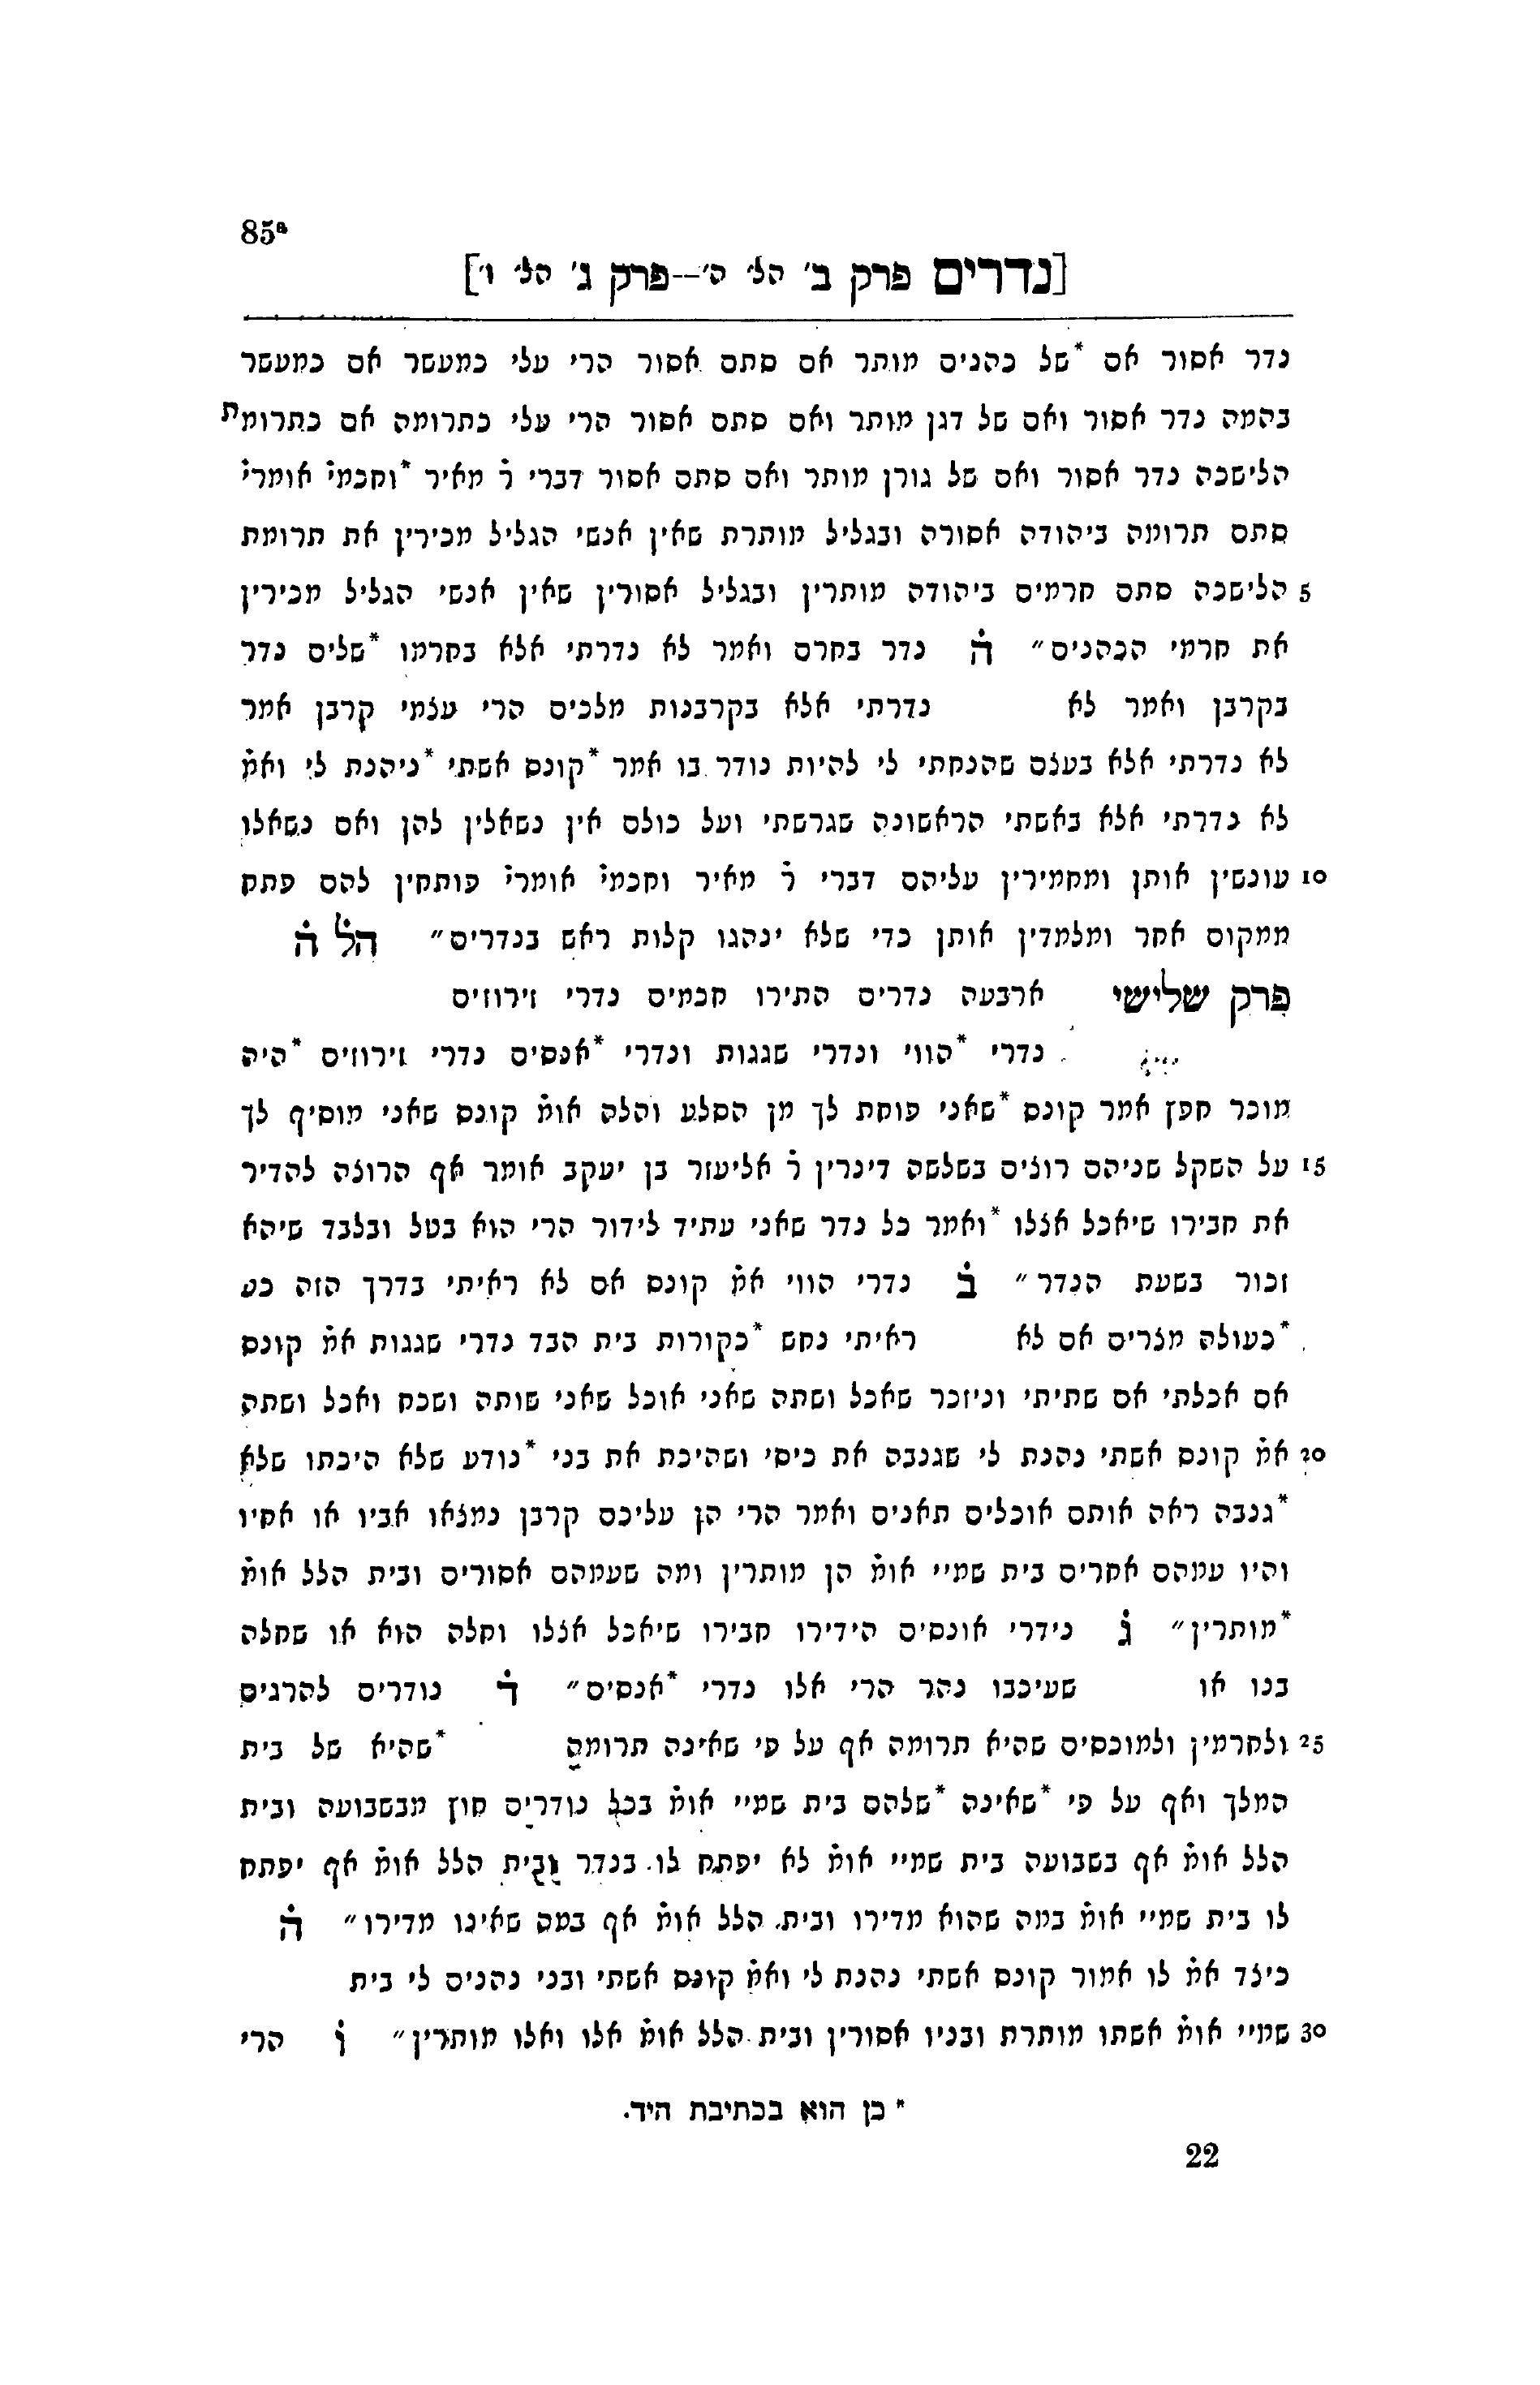 85ª
[נדרים פרק ב' הל' ה'—פרק ג' הל' ו']
נדר אסור אם *של כהנים מותר אם סתם אסור הרי עלי כמעשר אם כמעשר
בהמה נדר אסור ואם של דגן מותר ואם סתם אסור הרי עלי כתרומה אם כתרומת
הלישכה נדר אסור ואם של גורן מותר ואם סתם אסור דברי ר̇ מאיר *וחכמי̇ אומרי̇
סתם תרומה ביהודה אסורה ובגליל מותרת שאין אנשי הגליל מכירין את תרומת
5 הלישכה סתם חרמים ביהודה מותרין ובגליל אסורין שאין אנשי הגליל מכירין
את חרמי הכהנים״ ה̇ נדר בחרם ואמר לא נדרתי אלא בחרמו *שלים נדר
בקרבן ואמר לא נדרתי אלא בקרבנות מלכים הרי עצמי קרבן אמר
לא נדרתי אלא בעצם שהנחתי לי להיות נודר בו אמר *קונס אשתי *ניהנת לי ואמ̇
לא נדרתי אלא באשתי הראשונה שגרשתי ועל כולם אין נשאלין להן ואם נשאלו
10 עונשין אותן ומחמירין עליהם דברי ר̇ מאיר וחכמי̇ אומרי̇ פותחין להם פתח
ממקום אחר ומלמדין אותן כדי שלא ינהגו קלות ראש בנדרים״ הל̇ ה̇
פרק שלישי ארבעה נדרים התירו חכמים נדרי זירוזים
נדרי *הווי ונדרי שגגות ונדרי *אנסים נדרי זירוזים *היה
מוכר חפץ אמר קונס *שאני פוחת לך מן הסלע והלה אומ̇ קונס שאני מוסיף לך
15 על השקל שניהם רוצים בשלשה דינרין ר̇ אליעזר בן יעקב אומר אף הרוצה להדיר
את חבירו שיאכל אצלו *ואמר כל נדר שאני עתיד לידור הרי הוא בטל ובלבד שיהא
זכור בשעת הנדר״ ב̇ נדרי הווי אמ̇ קונס אם לא ראיתי בדרך הזה כע
*כעולה מצרים אם לא ראיתי נחש *כקורות בית הבד נדרי שגגות אמ̇ קונס
אם אכלתי אם שתיתי וניזכר שאכל ושתה שאני אוכל שאני שותה ושכח ואכל ושתה
20 אמ̇ קונס אשתי נהנת לי שגנבה את כיסי ושהיכת את בני *נודע שלא היכתו שלא
*גנבה ראה אותם אוכלים תאנים ואמר הרי הן עליכם קרבן נמצאו אביו או אחיו
והיו עמהם אחרים בית שמיי אומ̇ הן מותרין ומה שעמהם אסורים ובית הלל אומ̇
*מותרין״ ג̇ נידרי אונסים הידירו חבירו שיאכל אצלו וחלה הוא או שחלה
בנו או שעיכבו נהר הרי אלו נדרי *אנסים״ ד̇ נודרים להרגים
25 ולחרמין ולמוכסים שהיא תרומה אף על פי שאינה תרומה *שהיא של בית
המלך ואף על פי *שאינה *שלהם בית שמיי אומ̇ בכל נודרים חוץ מבשבועה ובית
הלל אומ̇ אף בשבועה בית שמיי אומ̇ לא יפתח לו בנדר ובית הלל אומ̇ אף יפתח
לו בית שמיי אומ̇ במה שהוא מדירו ובית הלל אומ̇ אף במה שאינו מדירו״ ה̇
כיצד אמ̇ לו אמור קונס אשתי נהנת לי ואמ̇ קונס אשתי ובני נהנים לי בית
30 שמיי אומ̇ אשתו מותרת ובניו אסורין ובית הלל אומ̇ אלו ואלו מותרין״ ו̇ הרי
* כן הוא בכתיבת היד.
22